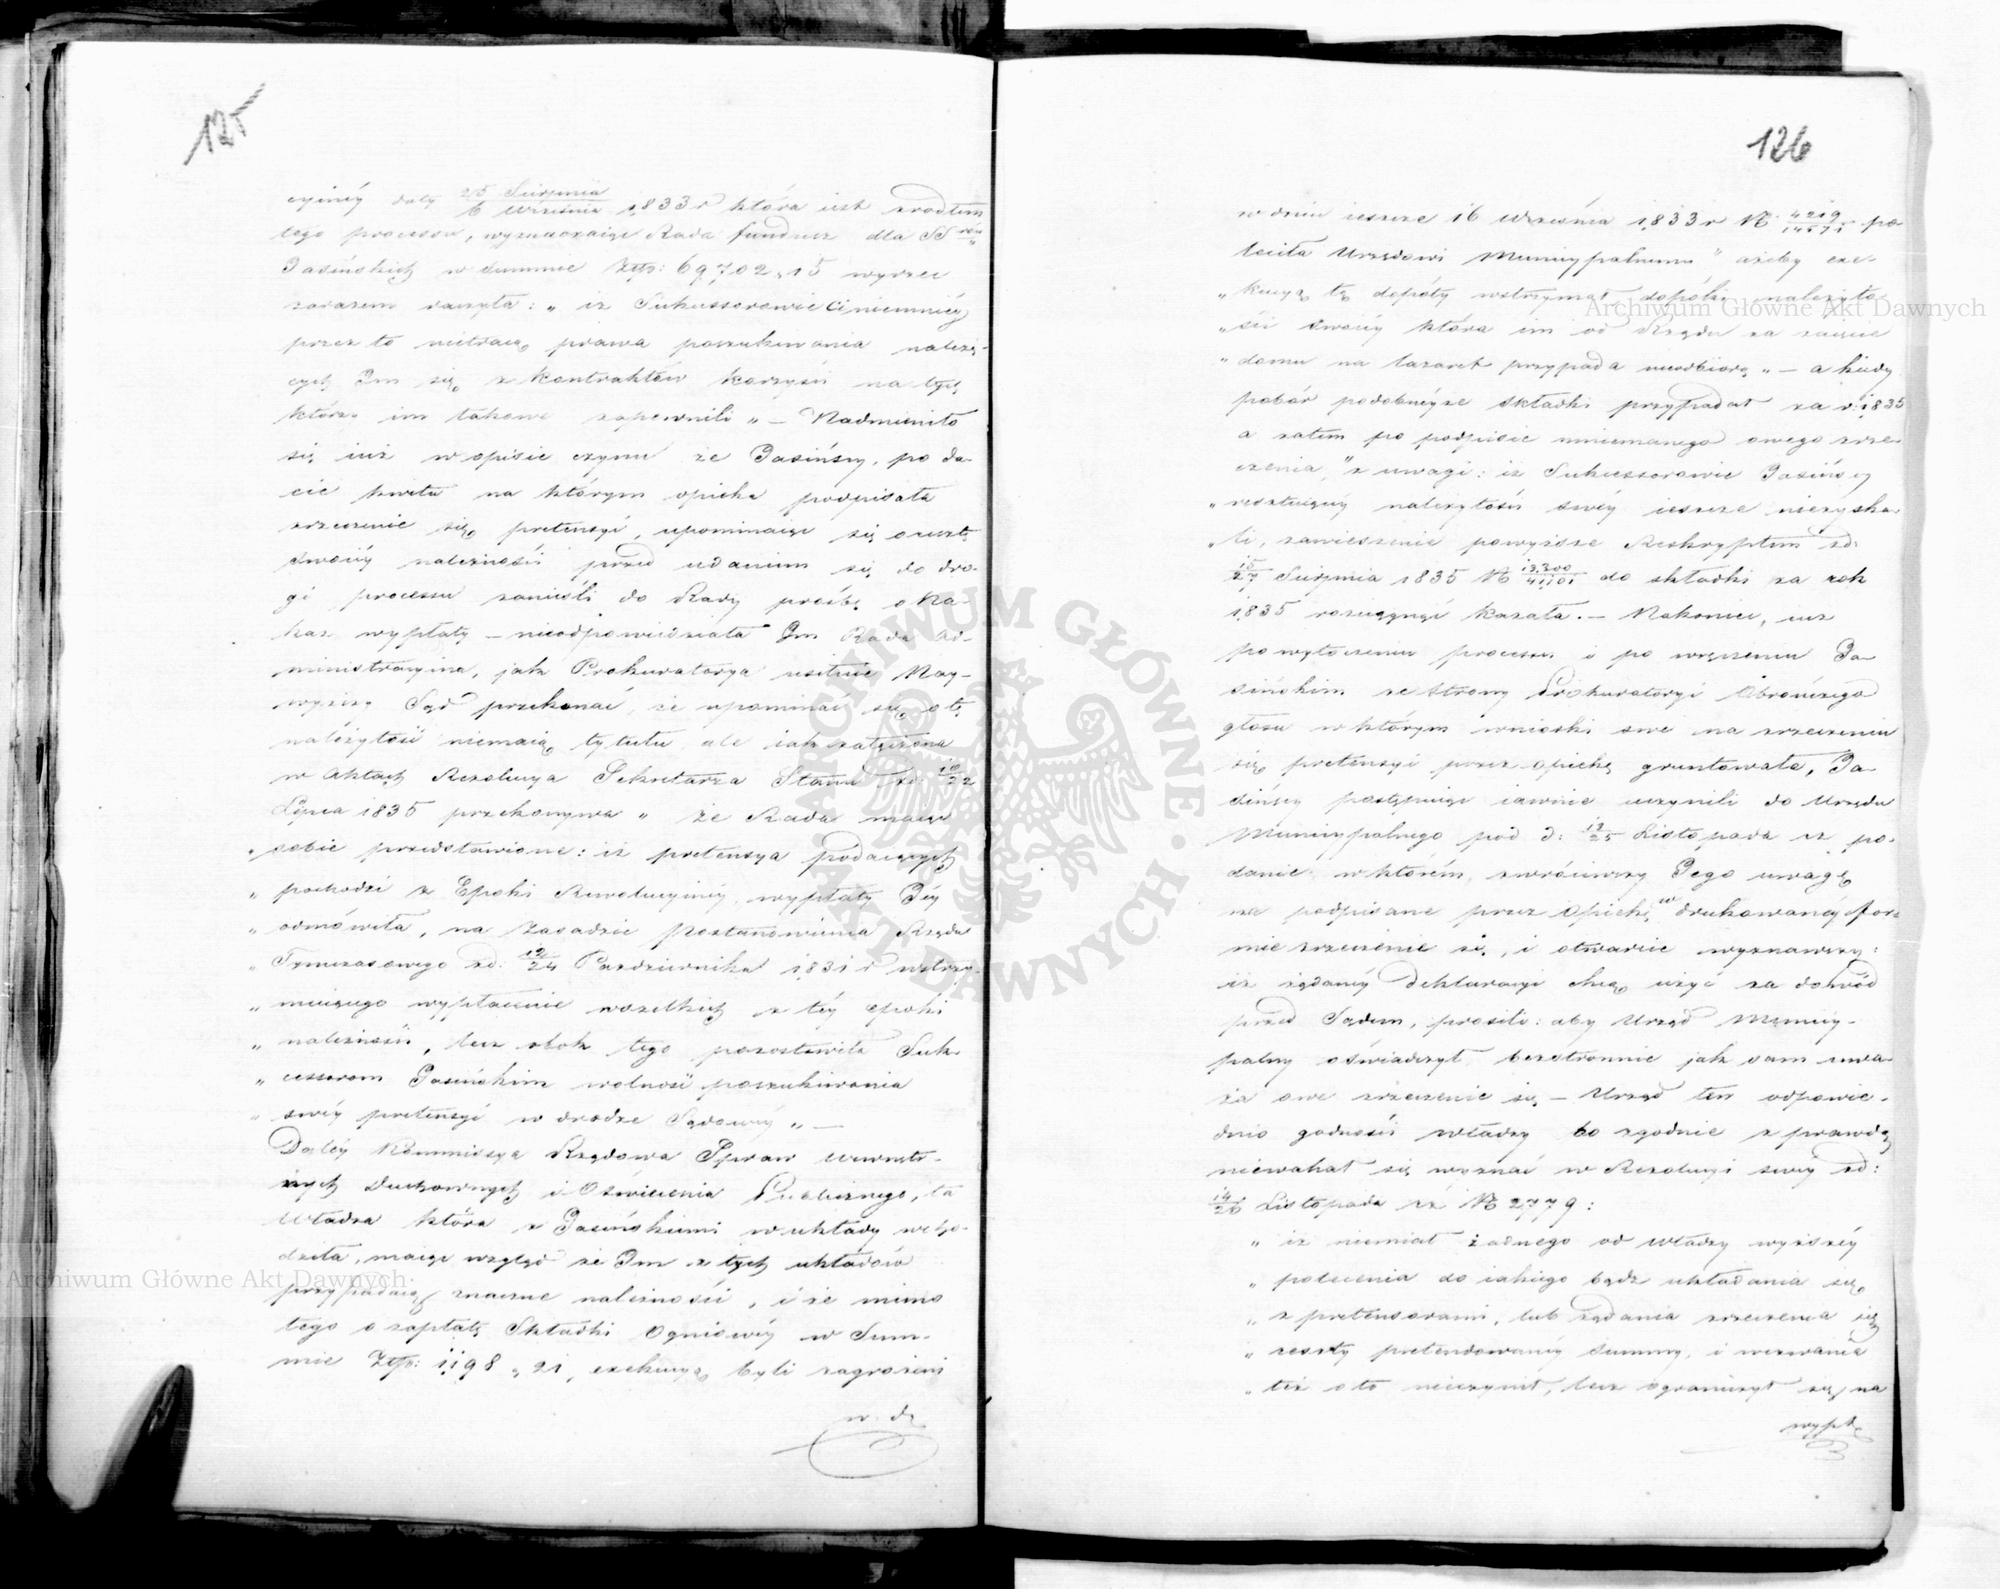 125
cyinéy daty 25 Sierpnia
6 Września 1833 r która iest zrodłem
tego processu, wyznaczaiąc Rada fundusz dla SS rów
Jasińskich w summie Złtp: 69702 „ 15 wyrzec
zarazem raczyła: „ iż Sukcessorowie Ci niemniéy
przez to nietracą prawa poszukiwania należą-
cych Im się z Kontraktów korzyści na tych
którzy im takowe zapewnili „ — Nadmieniło
się iuż w opisie czynu że Jasińscy, po da-
cie kwitu na którym opieka podpisała
zrzeczenie się pretensyi, upominaiąc się o resztę
swoiéy należności przed udaniem się do dro-
gi processu zanieśli do Rady prośbę o Na-
kaz wypłaty — nieodpowiedziała Im Rada Ad-
ministracyina, jak Prokuratorya usiłuie Nay-
wyższy Sąd przekonać, że upominać się o tę
należytość niemaią tytułu, ale iak załączona
w Aktach Rezolucya Sekretarza Stanu zd: 10/22
Lipca 1835 przekonywa „ że Rada maiąc
„ sobie przedstawione: iż pretensya podaiących
„ pochodzi z Epoki Rewolucyinéy, wypłaty Jéy
„ odmówiła, na Zasadzie Postanowienia Rządu
„ Tymczasowego zd: 12/24 Pazdziernika 1831 r wstrzy-
„ muiącego wypłacenie wszelkich z téy epoki
„ należności, lecz obok tego pozostawiła Suk-
„ cessorom Jasińskim wolność poszukiwania
„ swéy pretensyi w drodze Sądowéy „ —
Daléy Kommissya Rządowa Spraw Wewnętr-
znych Duchownych i Oświecenia Publicznego, ta
Władza która z Jasińskiemi w układy wcho-
dziła, maiąc wzgląd że Im z tych układów
przypadaią znaczne należności, i że mimo
tego o zapłatę Składki Ogniowéy w Sum-
mie Złtp: 1198 „ 21, exekucyą byli zagrożeni
w dn
126
w dniu ieszcze 16 Września 1833 r N 4219/14571 po-
leciła Urzędowi Municypalnemu „ ażeby exe-
„ kucyą tę dopóty wstrzymał dopóki należyto-
„ ści swoiéy która im od Rządu za zaięcie
„ domu na lazaret przypada nieodbiorą „ — a kiedy
pobór podobnéyże składki przypadał za r: 1835
a zatem po podpisie mniemanego owego zrze-
czenia, „ z uwagi: iż Sukcessorowie Jasińscy
„ resztuiącéy należytości swéy ieszcze niezyska-
„ li, zawieszenie powyższe Reskryptem zd:
15/27 Sierpnia 1835 N 13300/41101 do składki za rok
1835 rosciągnąć kazała. — Nakoniec, iuż
po wytoczeniu processu i po wręczeniu Ja-
sińskim ze strony Prokuratoryi Obrończego
głosu w którym wnioski swe na zrzeczeniu
się pretensyi przez opiekę gruntowała, Ja-
sińscy postępuiąc iawnie uczynili do Urzędu
Municypalnego pod d: 13/25 Listopada rz po-
danie w którém, zwróciwszy Jego uwagę
na podpisane przez Opiekę w drukowanéy for-
mie zrzeczenie się, i otwarcie wyznawszy:
iż żądanéy deklaracyi chcą użyć za dowód
przed Sądem, prosili: aby Urząd Municy-
palny oświadczył bezstronnie jak sam uwa-
ża owe zrzeczenie się — Urząd ten odpowie-
dnio godności władzy bo zgodnie z prawdą
niewahał się wyznać w Rezolucyi swéy zd:
14/26 Listopada rz N 2779:
„ iż niemiał żadnego od Władzy wyższéy
„ polecenia do iakiego bądź układania się
„ z pretensorami, lub żądania zrzeczenia się
„ reszty pretendowanéy summy, i wezwania
„ też o to nieczynił, lecz ograniczył się na
wypł
Archiwum Główne Akt Dawnych
Archiwum Główne Akt Dawnych
ARCHIWUM GŁÓWNE
AKT DAWNYCH